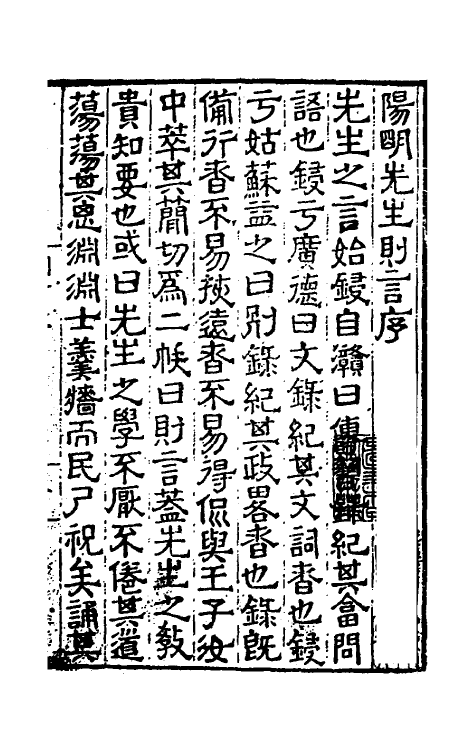 陽明先生則言序
先生之言始鋟自贛曰傳習錄紀其畣問
語也鋟亏廣德曰文錄紀其文詞者也鋟
亏姑蘇益之曰别錄紀其政畧者也錄既
備行者不易挾遠者不易得侃與王子汝
中萃其簡切爲二帙曰則言葢先生之教
貴知要也或曰先生之學不厭不倦其道
蕩蕩其恩淵淵士羹牆而民尸祝矣誦其